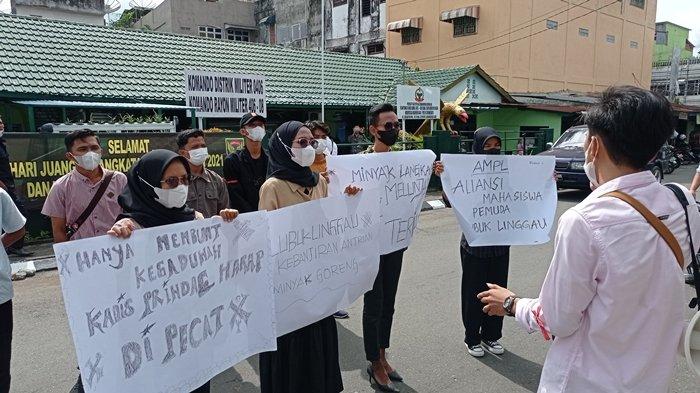 KOMANDO DISTRIK MILITER 0406
KOMANDO RAYON MILITER 406-08
SELAMAT
HARI JUANG
ANGKAT
2021
DAN
HANYA MEMBUAT
KEGADUHAN
KADIS PRINDAG HARAP
DI PECAT
LUBUKLINGGAU
KEBANJIRAN ANTRIAN
MINYAK GORENG
MINYAK LANGKA
MELUNJ
AMPL
ALIANSI
MAHASISWA
PEMUDA
LINGGAU